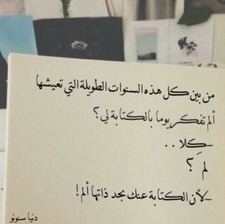 من بين كل هذه السنوات الطويلة التي تعيشها
ألم تفكر يوما بالكتابة لي؟
-كلا ..
لم ؟
-لأن الكتابة عنك بحد ذاتها ألم!
دنيا سنونو